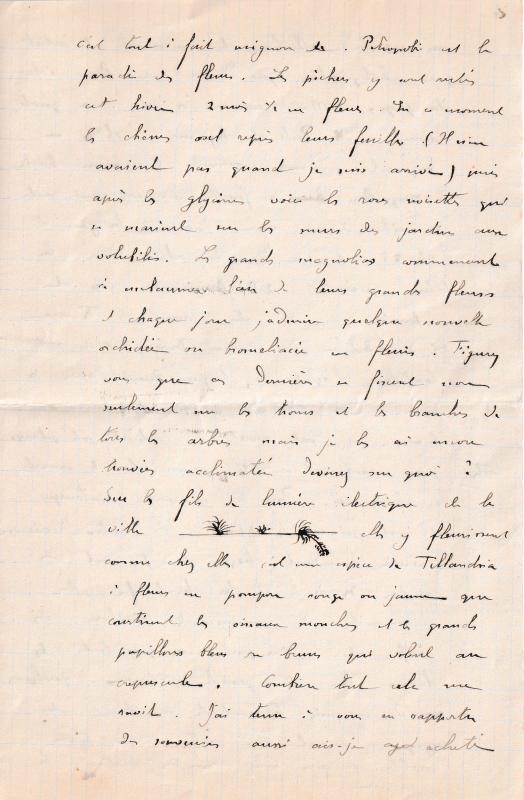 c'est tout à fait mignon. Pétropolis est le
paradis des fleurs. Les pêchers y sont restés
cet hiver 2 mois ½ en fleurs. En ce moment
les chênes ont repris leurs feuilles (Ils n'en
avaient pas quand je suis arrivé) puis
après les glycines voici les roses noisettes qui
se marient sur les murs des jardins aux
volubilis. Les grands magnolias commencent
à embaumer l'air de leurs grandes fleurs
et chaque jour j'admire quelque nouvelle
orchidée ou broméliacée en fleurs. Figurez
vous que ces dernières se fixent non
seulement sur les troncs et les branches de
tous les arbres mais je les ai encore
trouvées acclimatées devinez sur quoi ?
Sur les fils de lumière électrique de la
ville elles y fleurissent
comme chez elles c'est une espèce de Tillandsia
à fleurs en pompon rouge ou jaune que
courtisent les oiseaux mouches et les grands
papillons bleus ou bruns qui volent au
crépuscule. Combien tout cela me
ravit. J'ai tenu à vous en rapporter
des souvenirs aussi ai-je acheté